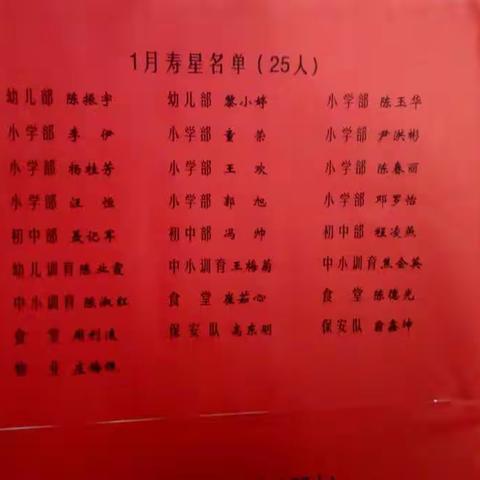 1月寿星名单(25人)
幼儿部 陈振宇 幼儿部 黎小婷 小学部 陈玉华
小学部 李 伊 小学部 童 荣 小学部 尹洪彬
小学部 杨桂芳 小学部 王 欢 小学部 陈春丽
小学部 汪 恒 小学部 郭 旭 小学部 邓罗怡
初中部 聂记军 初中部 冯 帅 初中部 程凌燕
幼儿训育 陈业霞 中小训育 王梅菊 中小训育 熊会英
中小训育 陈淑红 食 堂 崔茹心 食 堂 陈德光
食 堂 周利波 保安队 高东明 保安队 俞鑫坤
物 业